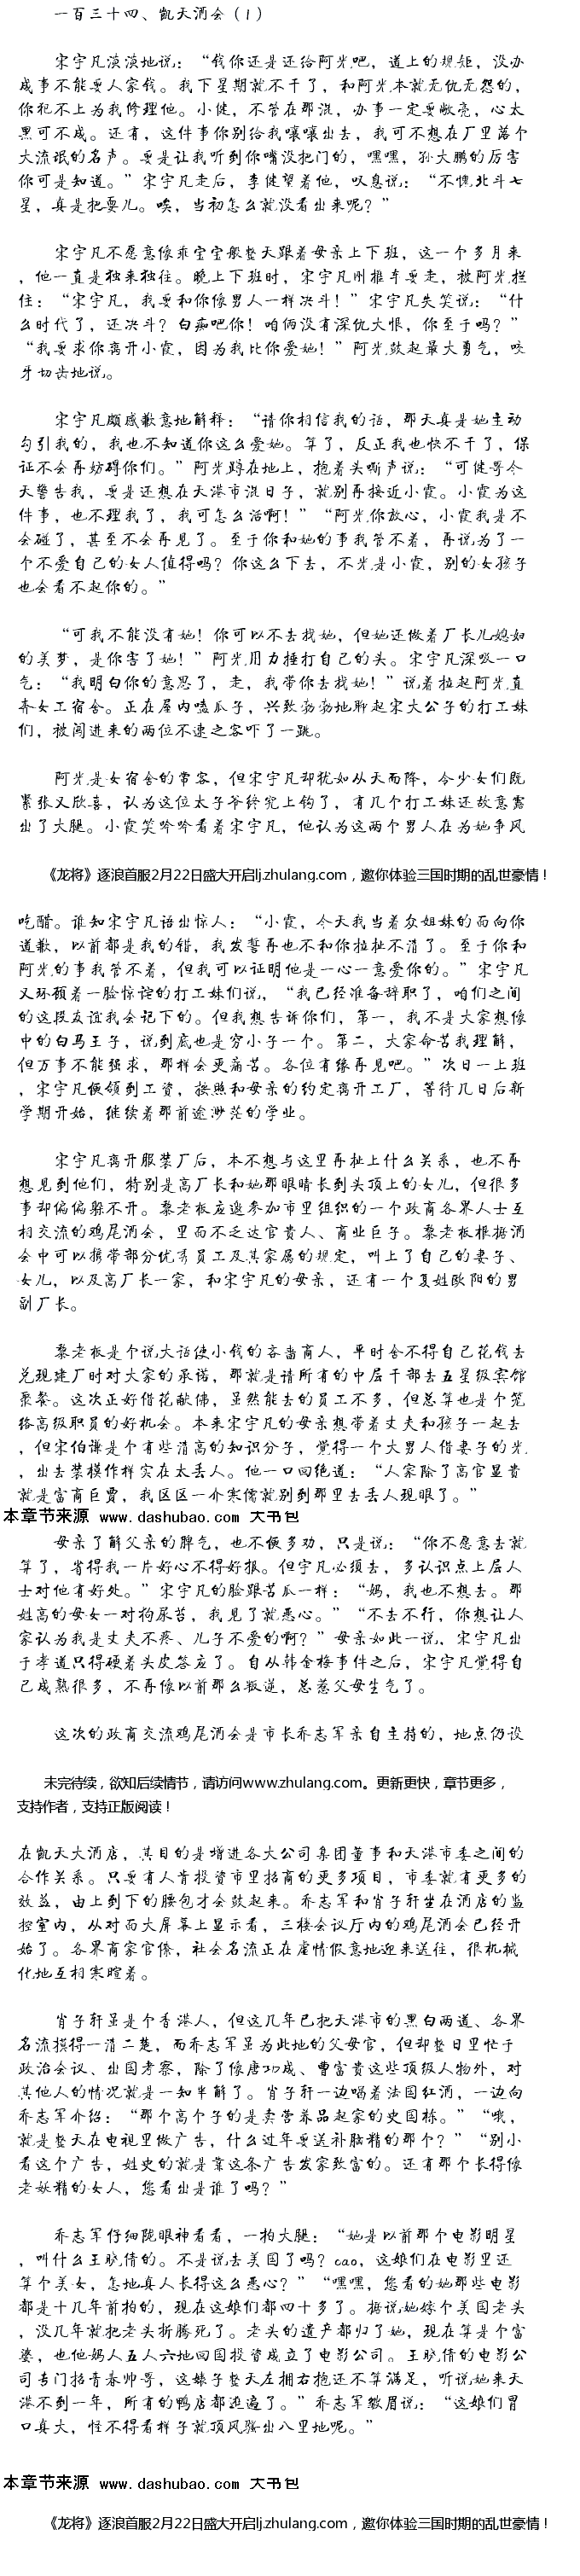 一百三十四、凯天酒会（1）
宋宇凡淡淡地说：“钱你还是还给阿光吧，道上的规矩，没办
成事不能要人家钱。我下星期就不干了，和阿光本就无仇无怨的，
你犯不上为我修理他。小健，不管在那混，办事一定要敞亮，心太
黑可不成。还有，这件事你别给我嚷嚷出去，我可不想在厂里落个
大流氓的名声。要是让我听到你嘴没把门的，嘿嘿，孙大鹏的厉害
你可是知道。”宋宇凡走后，李健望着他，叹息说：“不愧北斗七
星，真是把耍儿。唉，当初怎么就没看出来呢？”
宋宇凡不愿意像乖宝宝般整天跟着母亲上下班，这一个多月来
，他一直是独来独往。晚上下班时，宋宇凡刚推车要走，被阿光拦
住：“宋宇凡，我要和你像男人一样决斗！”宋宇凡失笑说：“什
么时代了，还决斗？白痴吧你！咱俩没有深仇大恨，你至于吗？”
“我要求你离开小霞，因为我比你爱她！”阿光鼓起最大勇气，咬
牙切齿地说。
宋宇凡颇感歉意地解释：“请你相信我的话，那天真是她主动
勾引我的，我也不知道你这么爱她。算了，反正我也快不干了，保
证不会再妨碍你们。”阿光蹲在地上，抱着头嘶声说：“可健哥今
天警告我，要是还想在天港市混日子，就别再接近小霞。小霞为这
件事，也不理我了，我可怎么活啊！”“阿光你放心，小霞我是不
会碰了，甚至不会再见了。至于你和她的事我管不着，再说为了一
个不爱自己的女人值得吗？你这么下去，不光是小霞，别的女孩子
也会看不起你的。”
“可我不能没有她！你可以不去找她，但她还做着厂长儿媳妇
的美梦，是你害了她！”阿光用力捶打自己的头。宋宇凡深吸一口
气：“我明白你的意思了，走，我带你去找她！”说着拉起阿光直
奔女工宿舍。正在屋内嗑瓜子，兴致勃勃地聊起宋大公子的打工妹
们，被闯进来的两位不速之客吓了一跳。
阿光是女宿舍的常客，但宋宇凡却犹如从天而降，令少女们既
紧张又欣喜，认为这位太子爷终究上钩了，有几个打工妹还故意露
出了大腿。小霞笑吟吟看着宋宇凡，他认为这两个男人在为她争风
《龙将》逐浪首服2月22日盛大开启lj.zhulang.com，邀你体验三国时期的乱世豪情！
吃醋。谁知宋宇凡语出惊人：“小霞，今天我当着众姐妹的面向你
道歉，以前都是我的错，我发誓再也不和你拉扯不清了。至于你和
阿光的事我管不着，但我可以证明他是一心一意爱你的。”宋宇凡
又环顾着一脸惊诧的打工妹们说，“我已经准备辞职了，咱们之间
的这段友谊我会记下的。但我想告诉你们，第一，我不是大家想像
中的白马王子，说到底也是穷小子一个。第二，大家命苦我理解，
但万事不能强求，那样会更痛苦。各位有缘再见吧。”次日一上班
，宋宇凡便领到工资，按照和母亲的约定离开工厂，等待几日后新
学期开始，继续着那前途渺茫的学业。
宋宇凡离开服装厂后，本不想与这里再扯上什么关系，也不再
想见到他们，特别是高厂长和她那眼睛长到头顶上的女儿，但很多
事却偏偏躲不开。黎老板应邀参加市里组织的一个政商各界人士互
相交流的鸡尾酒会，里面不乏达官贵人、商业巨子。黎老板根据酒
会中可以携带部分优秀员工及其家属的规定，叫上了自己的妻子、
女儿，以及高厂长一家，和宋宇凡的母亲，还有一个复姓欧阳的男
副厂长。
黎老板是个说大话使小钱的吝啬商人，平时舍不得自己花钱去
兑现建厂时对大家的承诺，那就是请所有的中层干部去五星级宾馆
聚餐。这次正好借花献佛，虽然能去的员工不多，但总算也是个笼
络高级职员的好机会。本来宋宇凡的母亲想带着丈夫和孩子一起去
，但宋伯谦是个有些清高的知识分子，觉得一个大男人借妻子的光
，出去装模作样实在太丢人。他一口回绝道：“人家除了高官显贵
就是富商巨贾，我区区一介寒儒就别到那里去丢人现眼了。”
本章节来源 www.dashubao.com 大书包
母亲了解父亲的脾气，也不便多劝，只是说：“你不愿意去就
算了，省得我一片好心不得好报。但宇凡必须去，多认识点上层人
士对他有好处。”宋宇凡的脸跟苦瓜一样：“妈，我也不想去。那
姓高的母女一对狗尿苔，我见了就恶心。”“不去不行，你想让人
家认为我是丈夫不疼、儿子不爱的啊？”母亲如此一说，宋宇凡出
于孝道只得硬着头皮答应了。自从韩金梅事件之后，宋宇凡觉得自
己成熟很多，不再像以前那么叛逆，总惹父母生气了。
这次的政商交流鸡尾酒会是市长乔志军亲自主持的，地点仍设
未完待续，欲知后续情节，请访问www.zhulang.com。更新更快，章节更多，
支持作者，支持正版阅读！
在凯天大酒店，其目的是增进各大公司集团董事和天港市委之间的
合作关系。只要有人肯投资市里招商的更多项目，市委就有更多的
效益，由上到下的腰包才会鼓起来。乔志军和肖子轩坐在酒店的监
控室内，从对面大屏幕上显示看，三楼会议厅内的鸡尾酒会已经开
始了。各界商家官僚，社会名流正在虚情假意地迎来送往，很机械
化地互相寒暄着。
肖子轩虽是个香港人，但这几年已把天港市的黑白两道、各界
名流摸得一清二楚，而乔志军虽为此地的父母官，但却整日里忙于
政治会议、出国考察，除了像唐功成、曹富贵这些顶级人物外，对
其他人的情况就是一知半解了。肖子轩一边喝着法国红酒，一边向
乔志军介绍：“那个高个子的是卖营养品起家的史国栋。”“哦，
就是整天在电视里做广告，什么过年要送补脑精的那个？”“别小
看这个广告，姓史的就是靠这条广告发家致富的。还有那个长得像
老妖精的女人，您看出是谁了吗？”
乔志军仔细眈眼神看看，一拍大腿：“她是以前那个电影明星
，叫什么王晓倩的。不是说去美国了吗？cao，这娘们在电影里还
算个美女，怎地真人长得这么恶心？”“嘿嘿，您看的她那些电影
都是十几年前拍的，现在这娘们都四十多了。据说她嫁个美国老头
，没几年就把老头折腾死了。老头的遗产都归了她，现在算是个富
婆，也他妈人五人六地回国投资成立了电影公司。王晓倩的电影公
司专门招青春帅哥，这婊子整天左拥右抱还不算满足，听说她来天
港不到一年，所有的鸭店都逛遍了。”乔志军皱眉说：“这娘们胃
口真大，怪不得看样子就顶风骚出八里地呢。”
本章节来源 www.dashubao.com 大书包
《龙将》逐浪首服2月22日盛大开启lj.zhulang.com，邀你体验三国时期的乱世豪情！